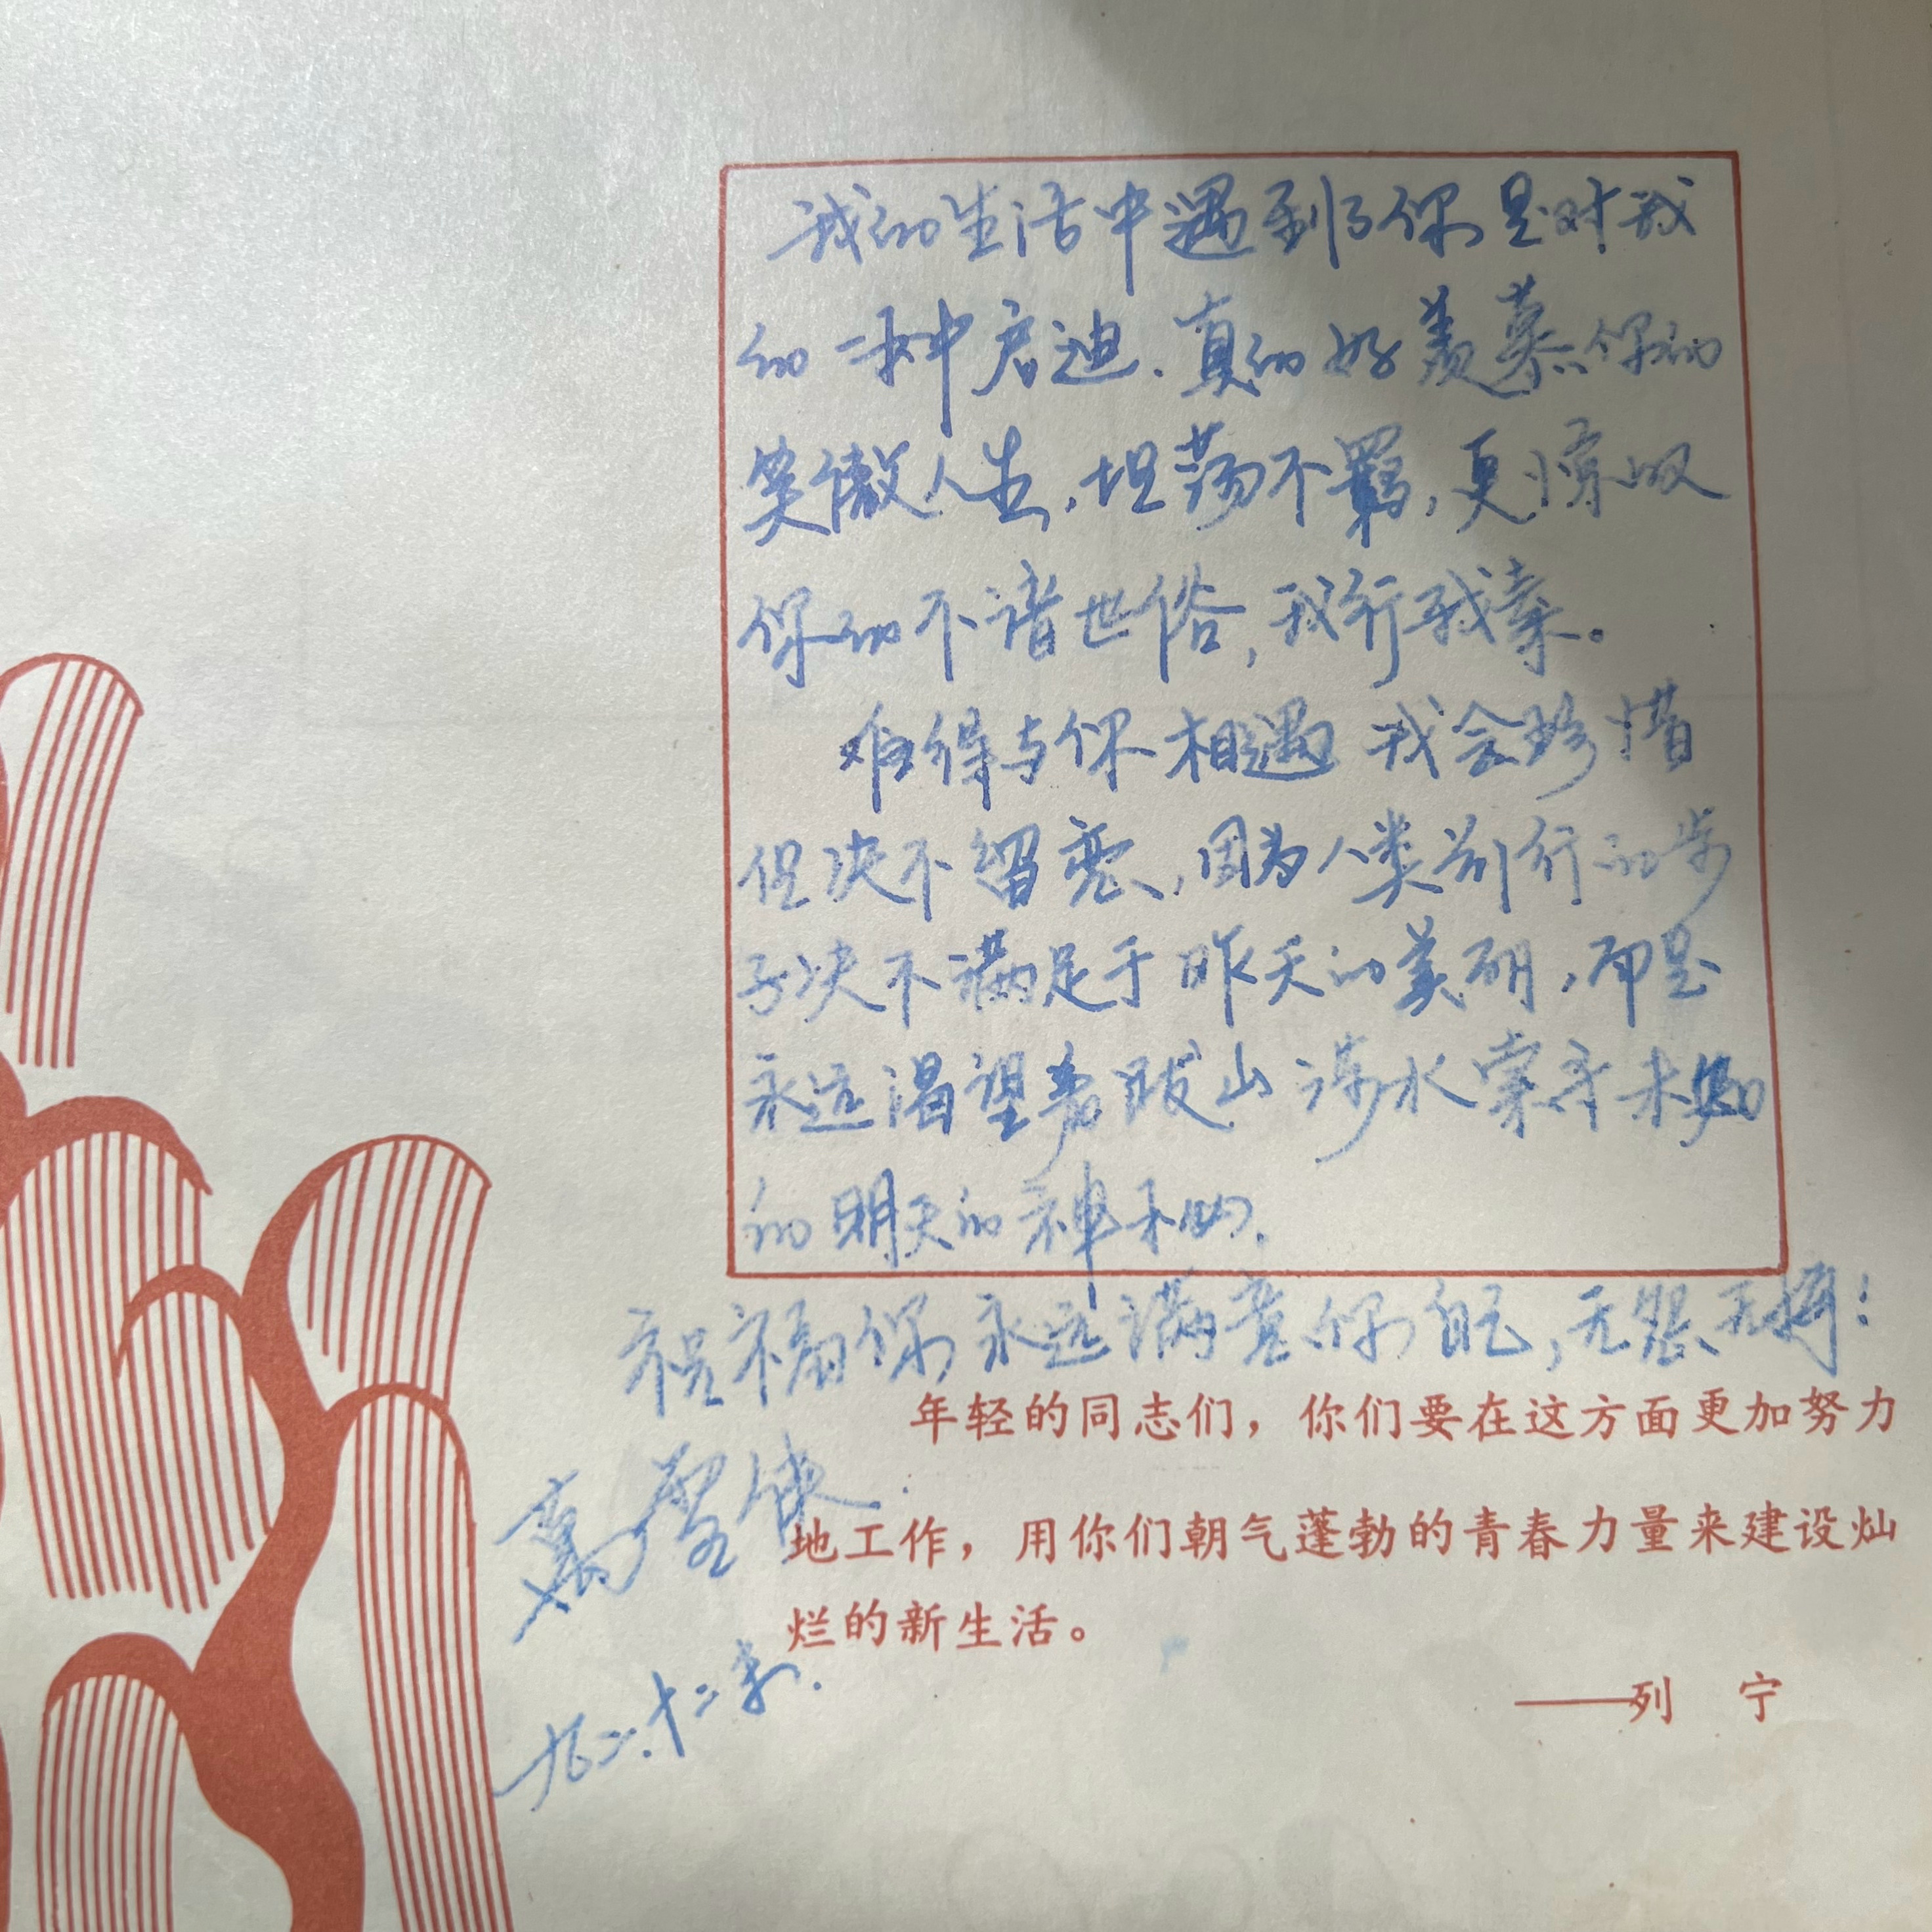 我的生活中遇到了你是对我
的一种启迪.真的好羡慕你的
笑傲人生,坦荡不羁,更惊叹
你的不谙世俗,我行我素。
难得与你相遇 我会珍惜
但决不留恋,因为人类前行的步
子决不满足于昨天的美丽,而是
永远渴望着跋山涉水 索寻未知
的明天的神秘.
祝福你永远满意你自己,无怨无悔!
年轻的同志们，你们要在这方面更加努力
地工作，用你们朝气蓬勃的青春力量来建设灿
烂的新生活。
——列 宁
九二.十二